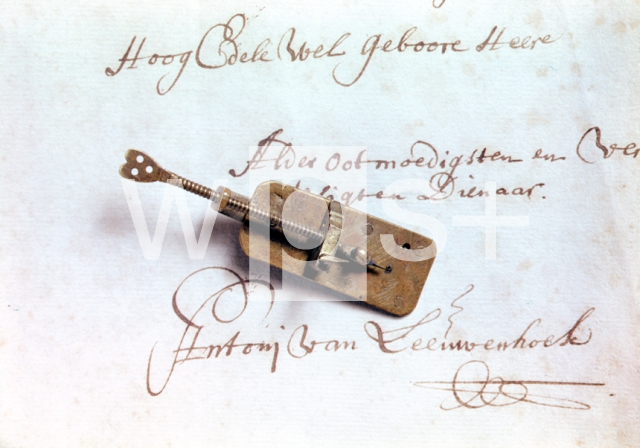 Hoog Edele Wel Geboore Heere
Alder Oot moedigsten en
Dienaar.
wps+
Antonj van Leeuwenhoek